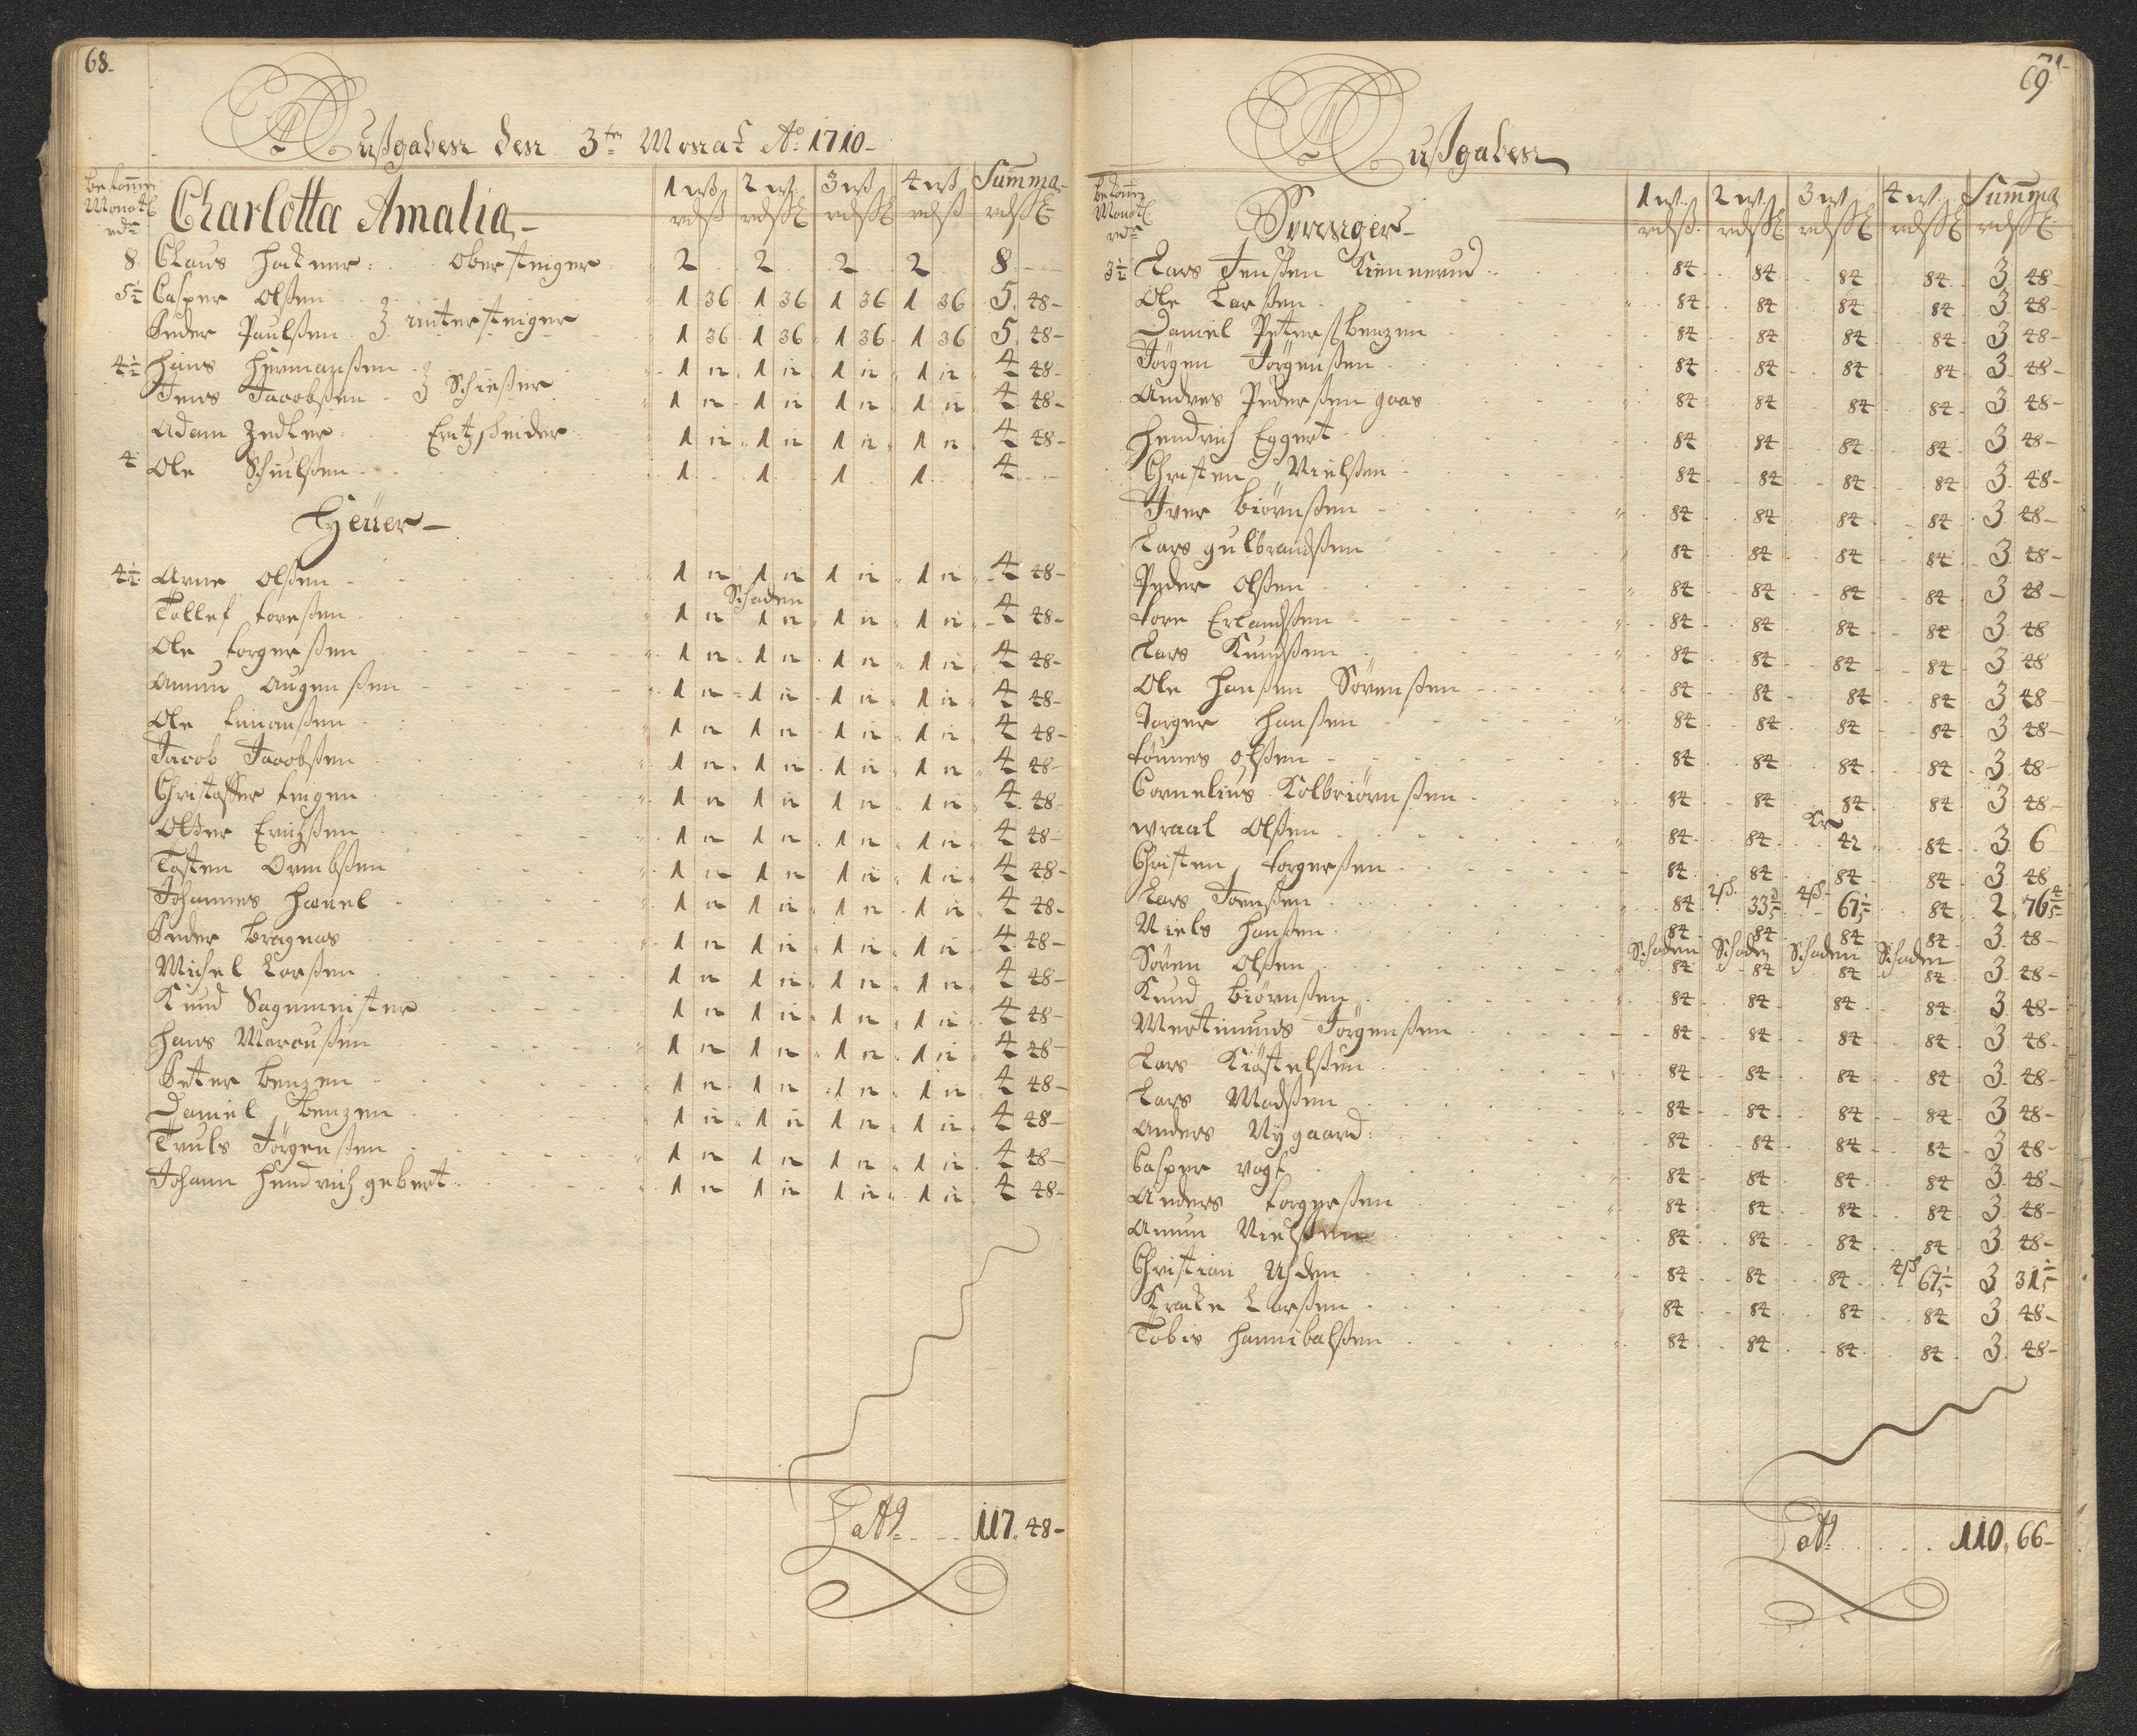 68.
Außgaben den 3ten Monat Ao 1710
bekomen Monatl rdr
Charlotta Amalia
1 wß 2 wß 3 wß 4 wß Summa
rdß rdß rdß rdß rdß
8 Claus Hackner: Obersteiger 2 2 2 2 8
5½ Casper Olßen 1 36 1 36 1 36 1 36 5. 48
Peder Paulßen untersteiger 1 36 1 36 1 36 1 36 5. 48
4½ Hans Hermanßen 1 12 1 12 1 12 1 12 4 48
Jens Jacobßen Schießer 1 12 1 12 1 12 1 12 4 48
Adam Zedler Ertzscheider 1 12 1 12 1 12 1 12 4 48
4 Ole 1 1 1 1 4
Heüer
4½ Arne Olßen 1 12 1 12 1 12 1 12 4 48
Schaden
Tollef Toreßen 1 12 1 12 1 12 1 12 4 48
Ole Torgerßen 1 12 1 12 1 12 1 12 4 48
Amun Augenßen 1 12 1 12 1 12 1 12 4 48
Ole 1 12 1 12 1 12 1 12 4 48
Jacob Jacobßen 1 12 1 12 1 12 1 12 4 48
Christoffer 1 12 1 12 1 12 1 12 4 48
1 12 1 12 1 12 1 12 4 48
Tosten Ormbßen 1 12 1 12 1 12 1 12 4 48
Johannes Hanel 1 12 1 12 1 12 1 12 4 48
Peder Bragnas 1 12 1 12 1 12 1 12 4 48
Michel Larßen 1 12 1 12 1 12 1 12 4 48
Knud Sagemeister 1 12 1 12 1 12 1 12 4 48
Hans Marcußen 1 12 1 12 1 12 1 12 4 48
Peter Benzen 1 12 1 12 1 12 1 12 4 48
Daniel Benzen 1 12 1 12 1 12 1 12 4 48
Truls Jörgenßen 1 12 1 12 1 12 1 12 4 48
Johann Hendrich Gebert 1 12 1 12 1 12 1 12 4 48
Latt 117. 48
69
Außgaben
bekomen Monatl rdr
Svenger
1 w. 2 w. 3 w. 4 w. Summa
rdß rdß rdß rdß rdß
3½ Lars Jenßen Kiennerud 84 84 84 84 3 48
Ole Larßen 84 84 84 84 3 48
Daniel Peters Benzen 84 84 84 84 3 48
Jörgen Jörgenßen 84 84 84 84 3 48
Andres Pederßen gaas 84 84 84 84 3 48
Hendrich Eggert 84 84 84 84 3 48
Christen Nielßen 84 84 84 84 3 48
Iver Biörnßen 84 84 84 84 3 48
Lars Gulbrandßen 84 84 84 84 3 48
Peder Olßen 84 84 84 84 3 48
Tore Erlandßen 84 84 84 84 3 48
Lars Knudßen 84 84 84 84 3 48
Ole Hanßen Sörenßen 84 84 84 84 3 48
Torger Hanßen 84 84 84 84 3 48
Tönnes Olßen 84 84 84 84 3 48
Cornelius Kolbiörnßen 84 84 84 84 3 48
Kr
wraal Olßen 84 84 42 84 3 6
Christen Torgerßen 84 84 84 84 3 48
Lars Toenßen 84 2ß 33⅗ 4ß 67⅕ 84 2 76⅘
Niels Hanßen 84 84 84 84 3 48
Schaden Schaden Schaden Schaden
Sören Olßen 84 84 84 84 3 48
Knud Biörnßen 84 84 84 84 3 48
Mertinnus Jörgenßen 84 84 84 84 3 48
Lars Kiöstelßen 84 84 84 84 3 48
Lars Madßen 84 84 84 84 3 48
Anders Nygaard 84 84 84 84 3 48
Casper Vogt 84 84 84 84 3 48
Anders Torgerßen 84 84 84 84 3 48
Amun Nielßen 84 84 84 84 3 48
Christian Usden 84 84 84 4ß 67⅕ 3 31⅕
Kracke Larßen 84 84 84 84 3 48
Tobis Hannibalßen 84 84 84 84 3 48
Latt 110. 66